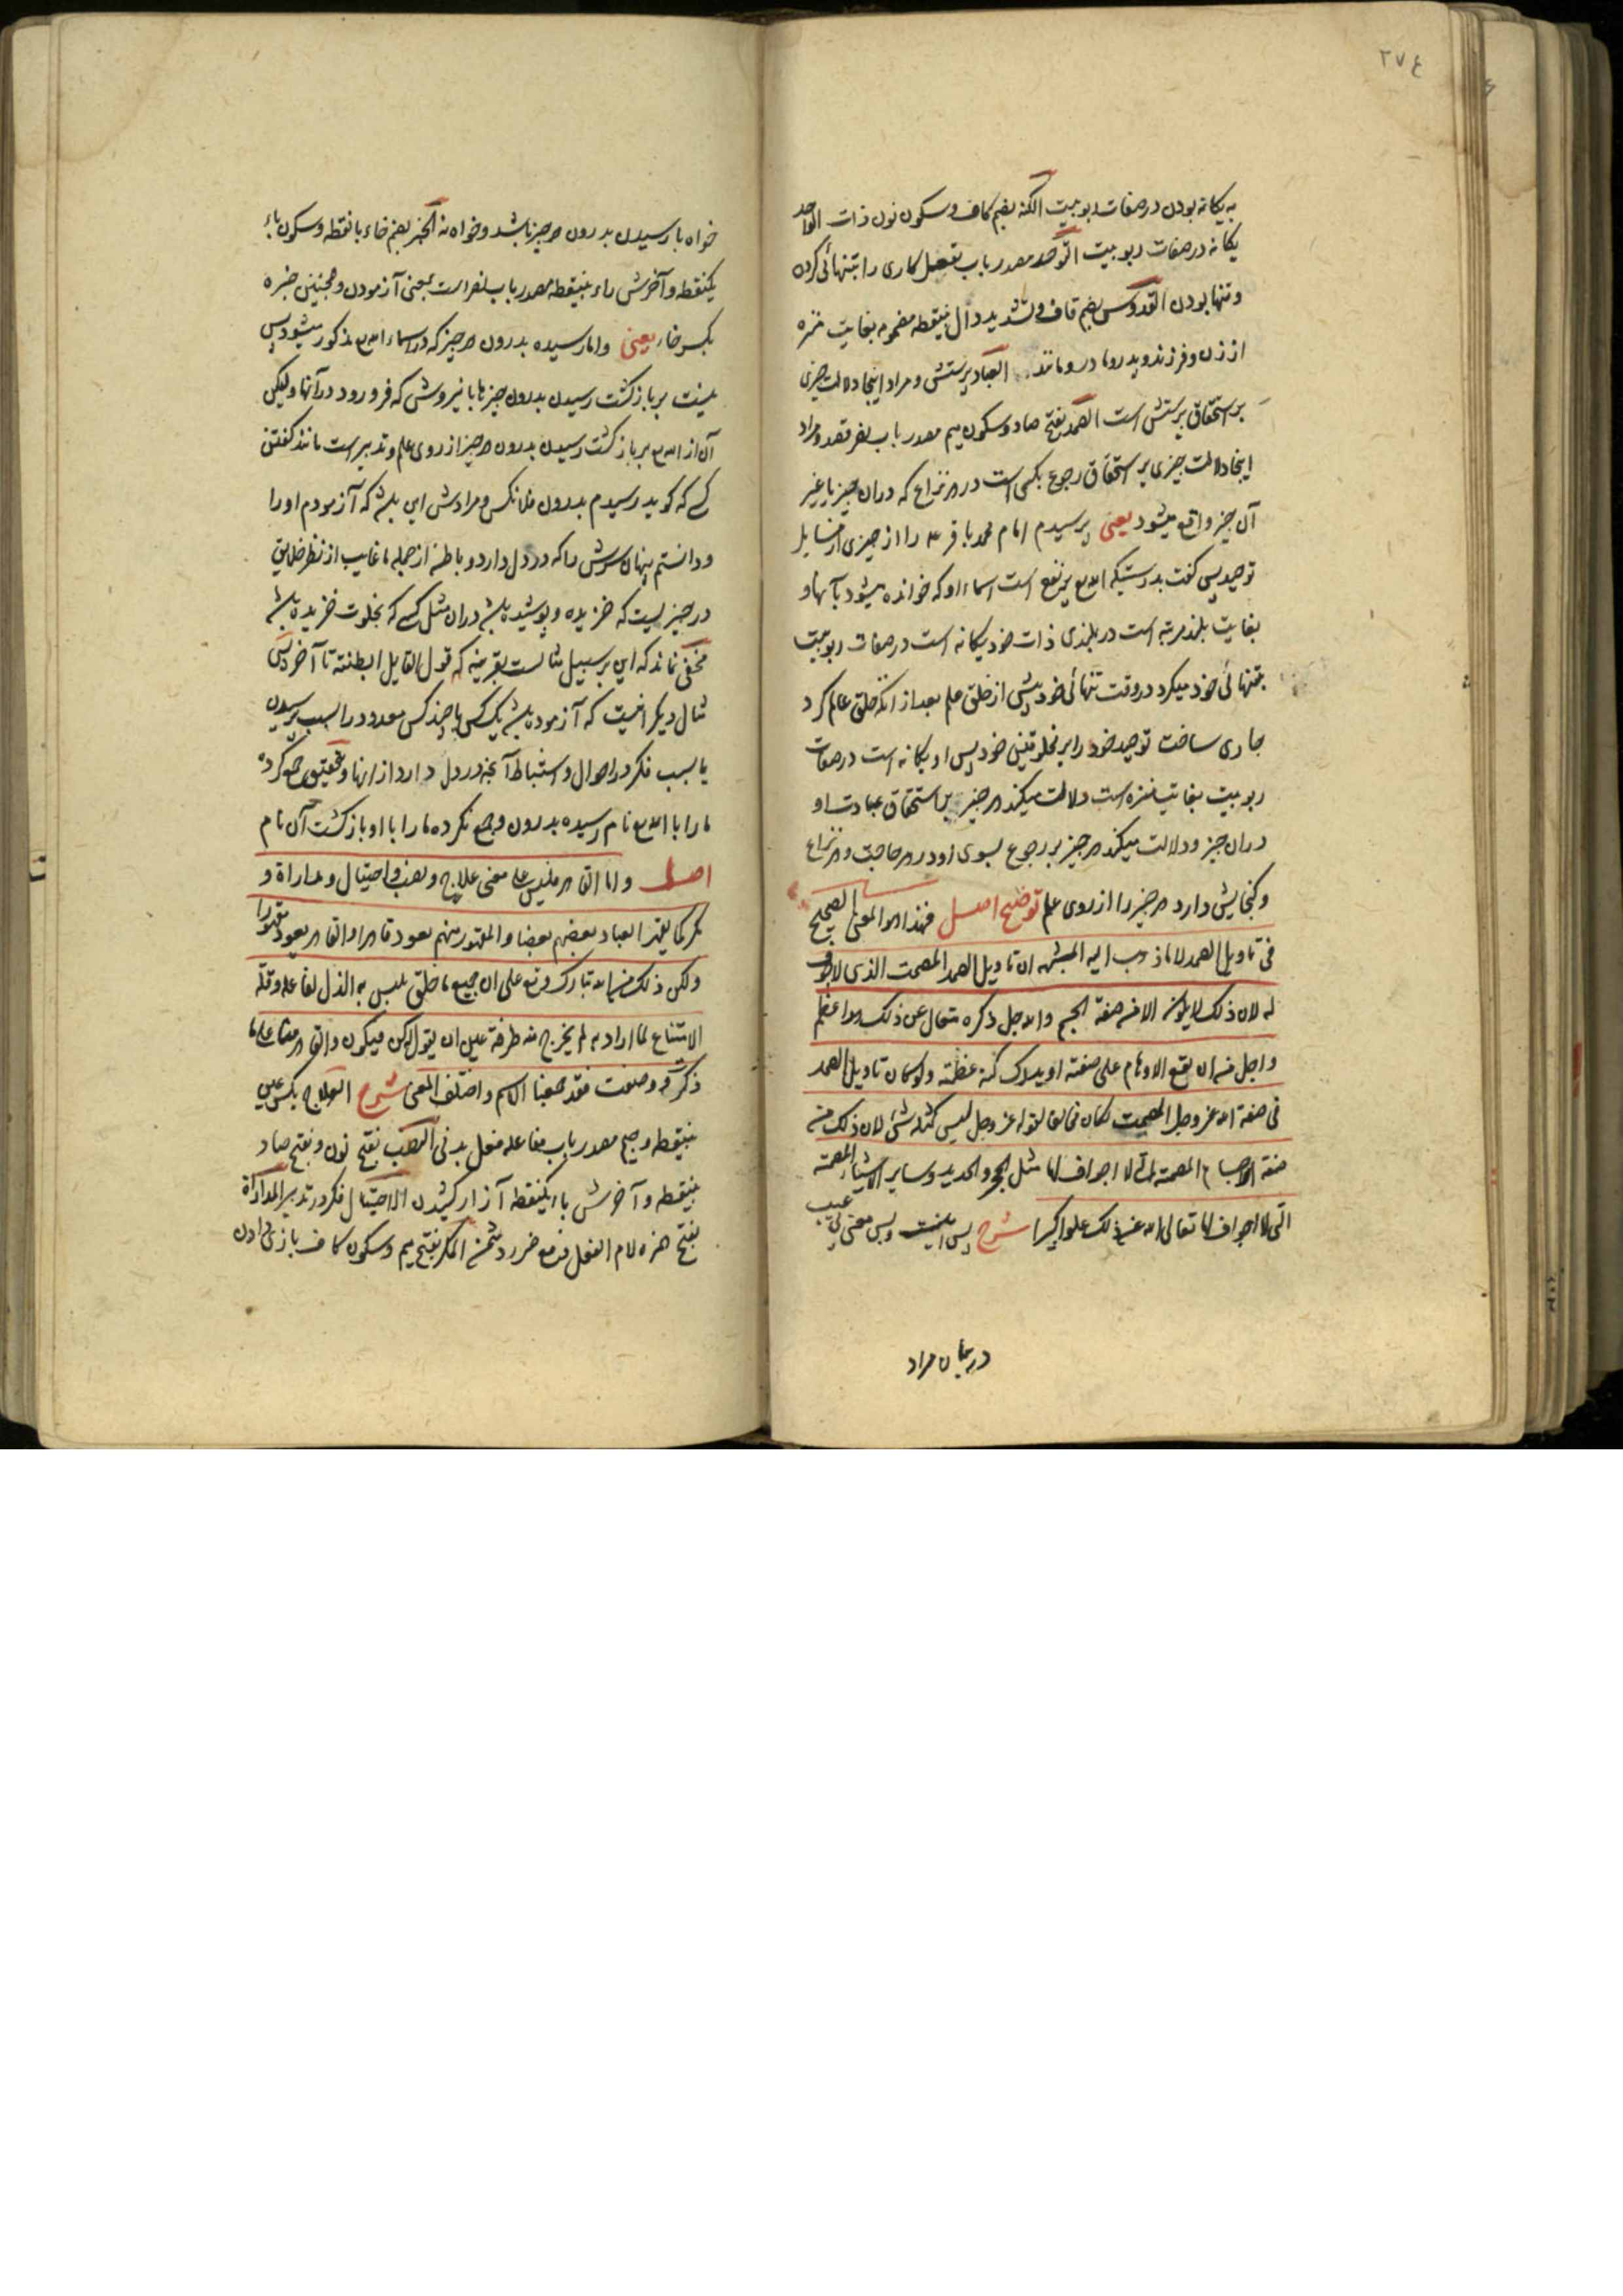 ۲۷۴
به یکانه بودن در صفات ربوبیت الکنه بضم کاف و سکون نون ذات الواحد
یکانه در صفات ربوبیت التوحد مصدر باب تفعل کاری را بتنهائی کردن
و تنها بودن القدوس بضم قاف و تشدید دال بینقطه مضمومه بغایت منزه
از زن و فرزند و پدر و مادر و مانند العباد پرستش و مراد اینجا دلالت چیزی
بر استحقاق پرستش است الصمد بفتح صاد و سکون میم مصدر باب نصر قصد و مراد
اینجا دلالت چیزی بر استحقاق رجوع بکسی است در هر نزاع که در آن چیز یا غیر
آن چیز واقع میشود یعنی پرسیدم امام محمد باقر ع را از چیزی از مسایل
توحید پس کفت بدرستیکه الله مع پرنفع است اسماء او که خوانده میشود بآنها و
بغایت بلند مرتبه است در بلندی ذات خود یکانه است در صفات ربوبیت
بتنهائی خود میکرد در وقت تنهائی خود پیش از خلق عالم بعد از آنکه خلق عالم کرد
جاری ساخت توحید خود را بر مخلوقین خود پس او یکانه است در صفات
ربوبیت بغایت منزه است دلالت میکند هر چیز بر استحقاق عبادت او
در آن چیز و دلالت میکند هر چیز بر رجوع بسوی او در هر حاجت و هر نزاع
و کنجایش دارد هر چیز را از روی علم توضیح اصل فهذا هو المعنی الصحیح
فی تاویل الصمد لا ما ذهب الیه المشبهه ان تاویل الصمد المصمت الذی لا جوف
له لان ذلک لا یکون الا من صفة الجسم والله جل ذکره متعال عن ذلک هو اعظم
و اجل من ان یقع الاوهام علی صفته او یدرک کنه عظمته و لو کان تاویل الصمد
فی صفة الله عز وجل المصمت لکان مخالفا لقوله عز وجل لیس کمثله شئ لان ذلک من
صفة الاجسام المصمتة التی لا اجواف لها مثل الحجر و الحدید و سایر الاشیاء المصمتة
التی لا اجواف لها تعالی الله عن ذلک علوا کبیرا شرح پس اینست و بس معنی بی عیب
در بیان مراد
خواه با رسیدن بدرون هر چیز باشد و خواه نه الخبر بضم خاء با نقطه و سکون باء
یکنقطه و آخرش راء بینقطه مصدر باب نصر است بمعنی آزمودن و همچنین خبره
بکسر خاء یعنی و اما رسیده بدرون هر چیز که در اسماء الله مع مذکور میشود پس
نیست بر بازکشت رسیدن بدرون چیزها بانیروش که فرو رود در آنها و لیکن
آن از الله مع بر بازکشت رسیدن بدرون هر چیز از روی علم و تدبیر است مانند کفتن
کسی که کوید رسیدم بدرون فلانکس و مرادش این باشد که آزمودم او را
و دانستم پنهان سرش را که در دل دارد و باطن از جمله ما غایب از نظر خلایق
در چیزیست که خزیده و پوشیده باشد در آن مثل کسی که بخلوت خزیده باشد
مخفی نماند که این بر سبیل مثالست بقرینه که قول القایل ابطنته تا آخر پس
مثال دیکر اینست که آزموده باشد یک کس یا چند کس معدود را بسبب پرسیدن
یا بسبب فکر در احوال و استنباط آنچه در دل دارد از آنها و بتحقیق جمع کرده
ما را با الله مع نام رسیده بدرون و جمع نکرده ما را با او بازکشت آن نام
اصل و اما القاهر فلیس علی معنی علاج و نصب و احتیال و مداراة و
مکر کما یقهر العباد بعضهم بعضا و المقهور منهم یعود قاهرا و القاهر یعود مقهورا
ولکن ذلک من الله تبارک وتع علی ان جمیع ما خلق ملبس به الذل لفاعله و قلة
الامتناع لما اراد به لم یخرج منه طرفة عین ان یقول له کن فیکون و القاهر منا علی ما
ذکرت و وصفت فقد جمعنا الاسم و اختلف المعنی شرح العلاج بکسر عین
بینقطه و جیم مصدر باب مفاعله فعل بدنی النصب بفتح نون و بفتح صاد
بینقطه و آخرش باء یکنقطه آزار کشیدن الاحتیال فکر در تدبیر المداراة
بفتح همزه لام الفعل دفع ضرر دشمن المکر بفتح میم و سکون کاف بازی دادن